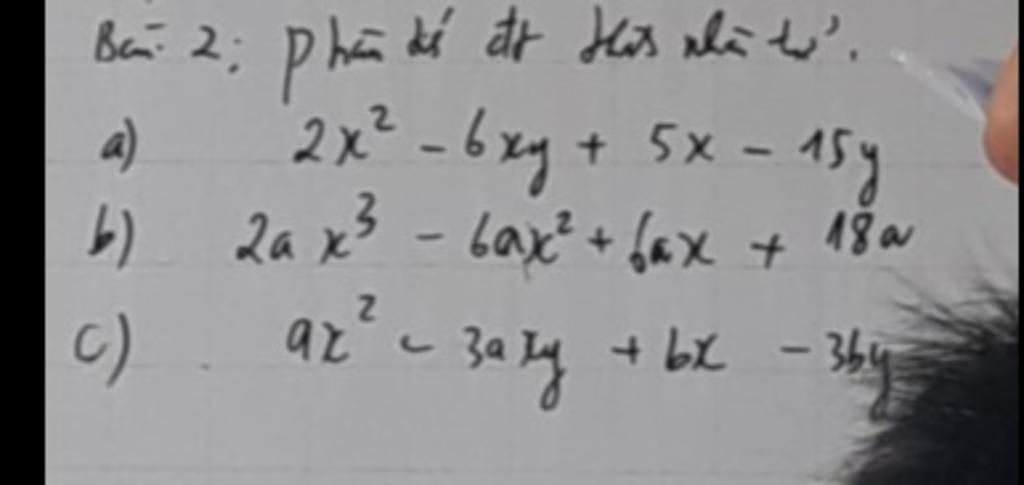 Bài 2: phân tí đt thàs nhân tử.
a) 2x² - 6xy + 5x - 15y
b) 2ax³ - 6ax² + 6ax + 18a
c) ax² - 3axy + bx - 3by